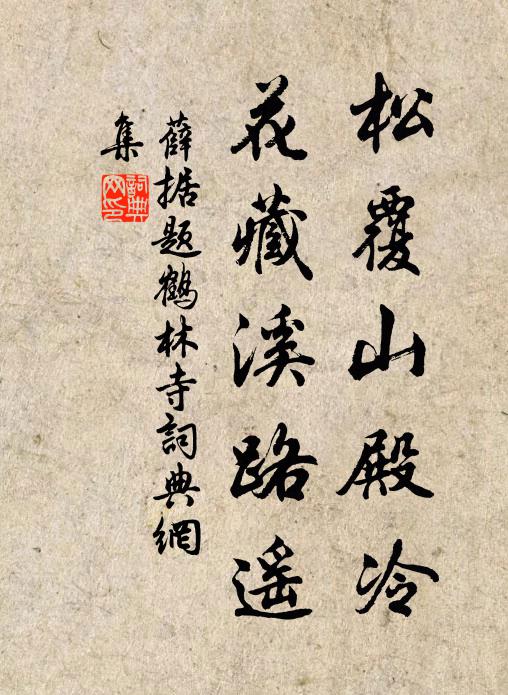 松覆山殿冷
花藏溪路遥
薛据题鹤林寺詞典網
集
詞典
网印